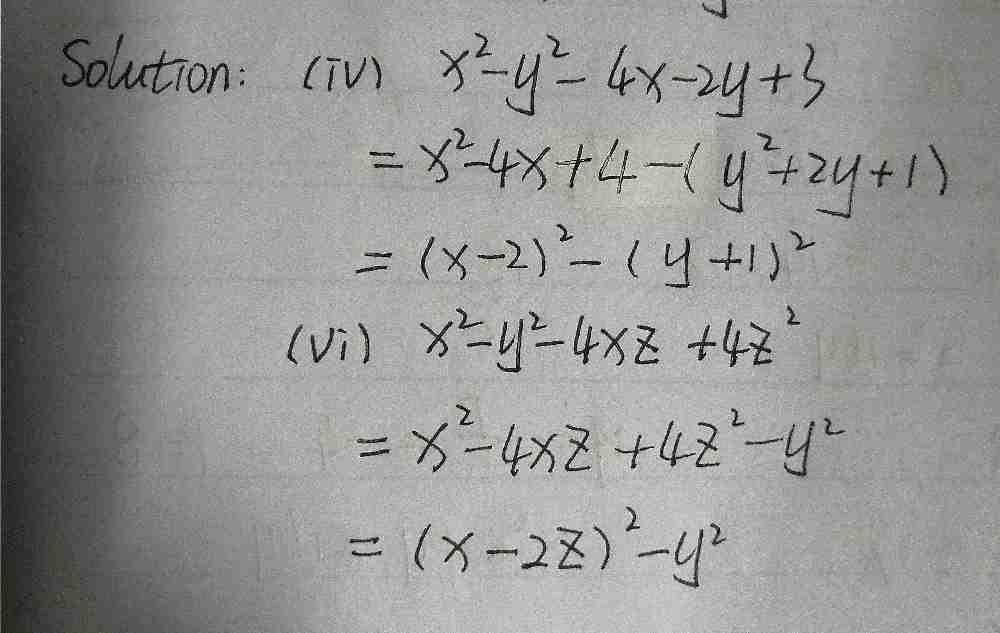 Solution: (iv) x²-y²-4x-2y+3
= x²-4x+4-(y²+2y+1)
= (x-2)²-(y+1)²
(vi) x²-y²-4xz+4z²
= x²-4xz+4z²-y²
= (x-2z)²-y²